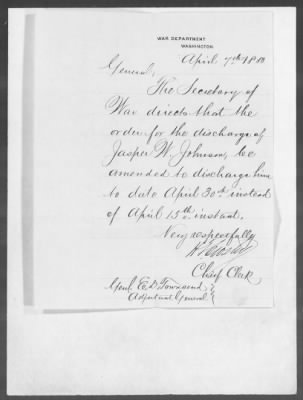 WAR DEPARTMENT
WASHINGTON
April 7th 1880
General,
The Secretary of
War directs that the
order for the discharge of
Jasper W. Johnson, be
amended to discharge him
to date April 30th instead
of April 15th instant.
Very respectfully
Chief Clerk
Genl E. D. Townsend
Adjutant General